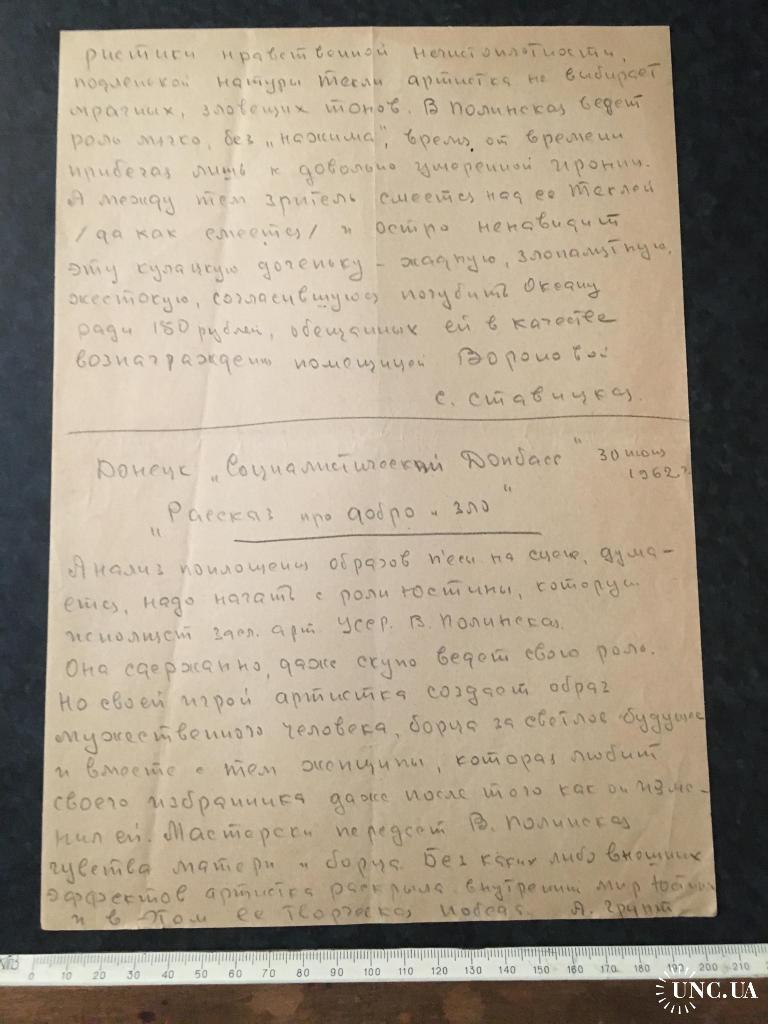 ристики нравственной нечистоплотности,
подленькой натуры Текли артистка не выбирает
мрачных, зловещих тонов. В Полинская ведет
роль мягко, без „нажима", время от времени
прибегая лишь к довольно умеренной иронии.
А между тем зритель смеется над ее Теклей
/да как смеется/ и остро ненавидит
эту кулацкую доченьку - жадную, злопамятную,
жестокую, согласившуюся погубить Оксану
ради 150 рублей, обещанных ей в качестве
вознаграждения помещицей Вороновой
С. Ставицкая.
Донецк „Социалистический Донбасс" 30 июня
1962 г.
„Рассказ про добро и зло"
Анализ поплощения образов п'еси на сцене, дума-
ется, надо начать с роли Юстины, которую
исполняет засл. арт. Усср. В. Полинская.
Она сдержанно, даже скупо ведет свою роль.
Но своей игрой артистка создает образ
мужественного человека, борца за светлое будущее
и вместе с тем женщины, которая любит
своего избранника даже после того как он изме-
нил ей. Мастерски передает В. Полинская
чувства матери и борца. Без каких либо внешних
эффектов артистка раскрыла внутренний мир Юстины
и в этом ее творческая победа. А. Грипт
0 10 20 30 40 50 60 70 80 90 100 110 120 130 140 150 160 170 180 190 200 210
UNC.UA